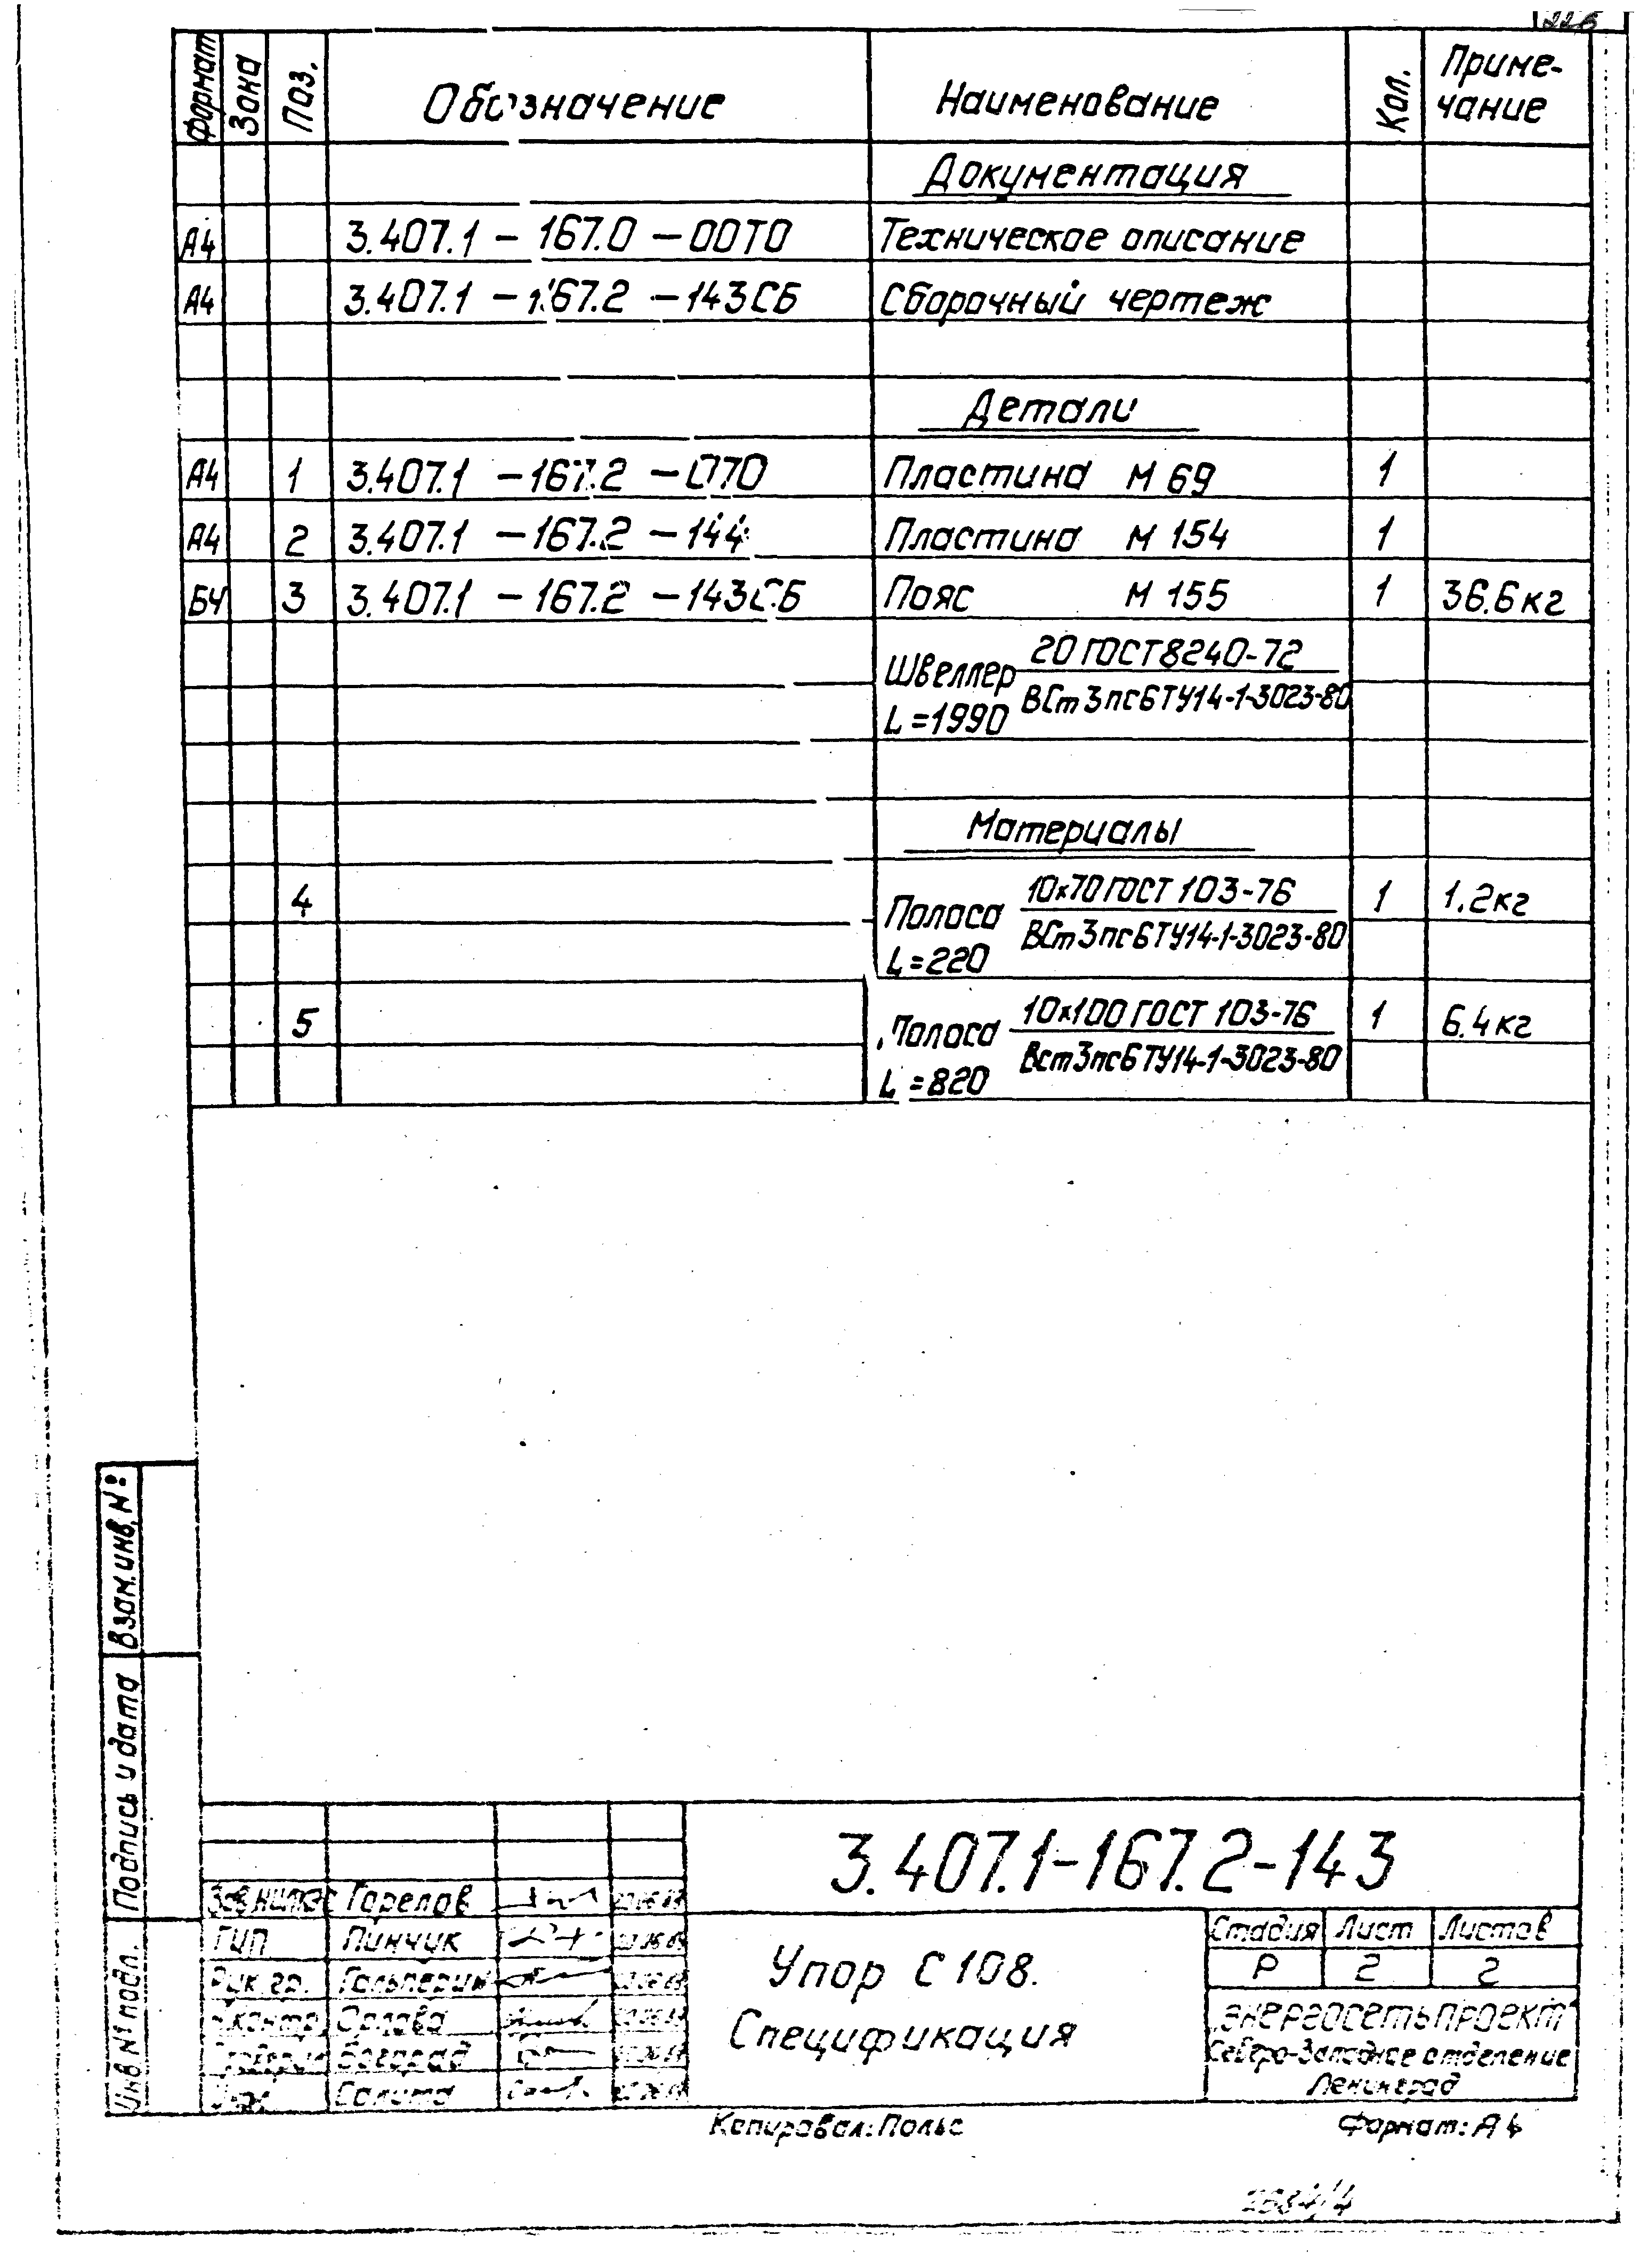 226
Формат Зона Поз. Обозначение Наименование Кол. Приме-
чание
Документация
А4 3.407.1 – 167.0 – 00ТО Техническое описание
А4 3.407.1 – 167.2 – 143СБ Сборочный чертеж
Детали
А4 1 3.407.1 – 167.2 – 070 Пластина М 69 1
А4 2 3.407.1 – 167.2 – 144 Пластина М 154 1
БЧ 3 3.407.1 – 167.2 – 143СБ Пояс М 155 1 36.6кг
20 ГОСТ 8240-72
Швеллер
ВСт3пс6ТУ14-1-3023-80
L=1990
Материалы
4 10х70 ГОСТ 103-76 1 1.2кг
Полоса
ВСт3пс6ТУ14-1-3023-80
L=220
5 10х100 ГОСТ 103-76 1 6.4кг
Полоса
Вст3пс6ТУ14-1-3023-80
L=820
Взам.инв.№
Подпись и дата
Инв № подл.
3.407.1-167.2-143
Горелов
ГИП Пинчик
Рук гр. Гальперин
Н.контр. Орлова
Солита
Упор С 108.
Спецификация
Стадия Лист Листов
Р 2 2
Энергосетьпроект
Северо-Западное отделение
Ленинград
Копировал: Польс Формат: А4